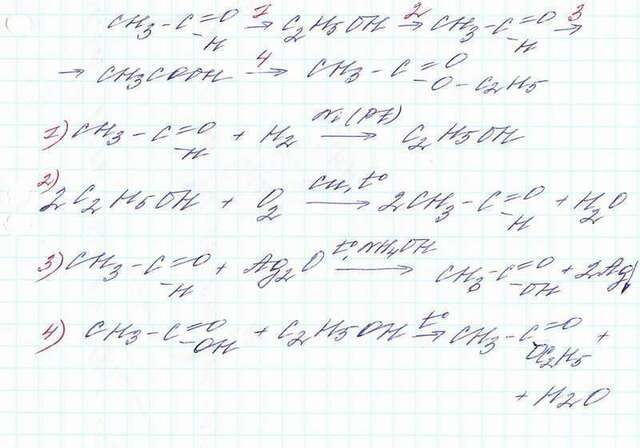 CH3-C=O-H →1 C2H5OH →2 CH3-C=O-H →3
→ CH3COOH →4 CH3-C=O-O-C2H5
1) CH3-C=O-H + H2 Ni(Pt)→ C2H5OH
2) 2C2H5OH + O2 Cu,t°→ 2CH3-C=O-H + H2O
3) CH3-C=O-H + Ag2O t°,NH4OH→ CH3-C=O-OH + 2Ag↓
4) CH3-C=O-OH + C2H5OH t°→ CH3-C=O-OC2H5 +
+ H2O